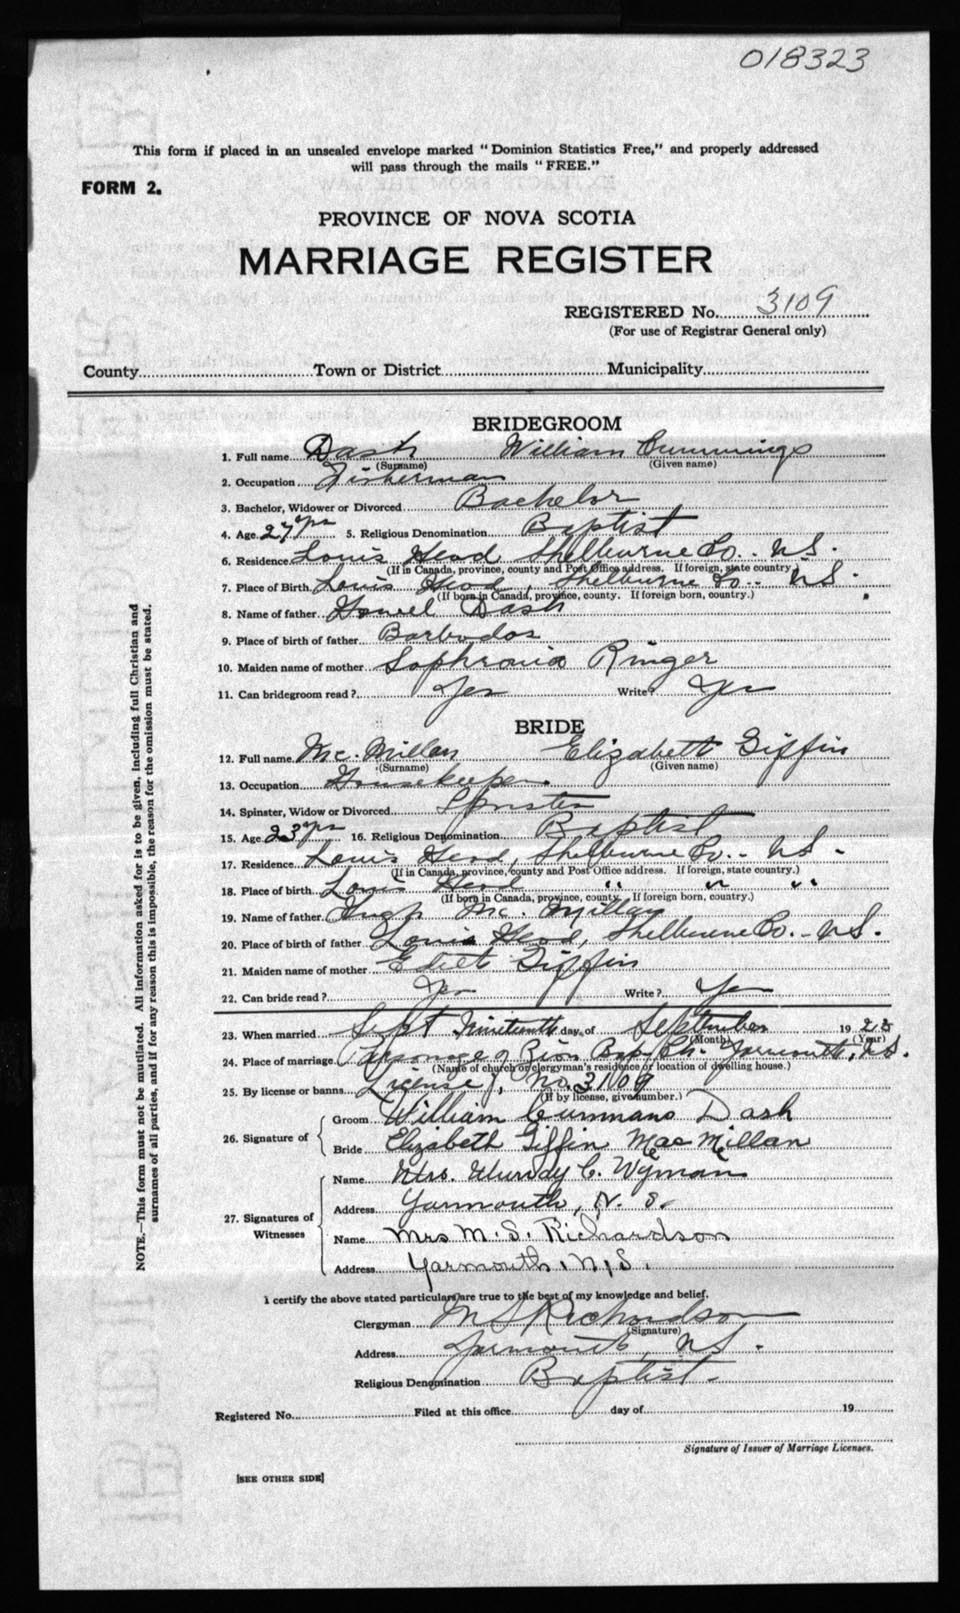 018323
This form if placed in an unsealed envelope marked "Dominion Statistics Free," and properly addressed
will pass through the mails "FREE."
FORM 2.
PROVINCE OF NOVA SCOTIA
MARRIAGE REGISTER
REGISTERED No. 3109
(For use of Registrar General only)
County Town or District Municipality
BRIDEGROOM
1. Full name Dash William Cummings
(Surname) (Given name)
2. Occupation Fisherman
3. Bachelor, Widower or Divorced Bachelor
4. Age 27 yrs 5. Religious Denomination Baptist
6. Residence Louis Head Shelburne Co.. N.S.
(If in Canada, province, county and Post Office address. If foreign, state country)
7. Place of Birth Louis Head, Shelburne Co.. N.S.
(If born in Canada, province, county. If foreign born, country.)
8. Name of father Howel Dash
9. Place of birth of father Barbados
10. Maiden name of mother Sophronia Ringer
11. Can bridegroom read? Yes Write? Yes
BRIDE
12. Full name Mc. Millan Elizabeth Giffin
(Surname) (Given name)
13. Occupation Housekeeper
14. Spinster, Widow or Divorced Spinster
15. Age 23 yrs 16. Religious Denomination Baptist
17. Residence Louis Head, Shelburne Co.. N.S.
(If in Canada, province, county and Post Office address. If foreign, state country.)
18. Place of birth Louis Head " " "
(If born in Canada, province, county. If foreign born, country.)
19. Name of father Hugh Mc. Millan
20. Place of birth of father Louis Head, Shelburne Co.. N.S.
21. Maiden name of mother Giffin
22. Can bride read? Yes Write? Yes
23. When married Sept Nineteenth day of September 1923
(Month) (Year)
24. Place of marriage Parsonage of Zion Bap. Ch. Yarmouth, N.S.
(Name of church or clergyman's residence or location of dwelling house.)
25. By license or banns License, No. 3109
(If by license, give number.)
26. Signature of
Groom William Cummans Dash
Bride Elizabeth Giffin MacMillan
27. Signatures of Witnesses
Name Mrs. Murray C. Wyman
Address Yarmouth, N. S.
Name Mrs M. S. Richardson
Address Yarmouth, N.S.
I certify the above stated particulars are true to the best of my knowledge and belief.
Clergyman M S Richardson
(Signature)
Address Yarmouth, N.S.
Religious Denomination Baptist.
Registered No. Filed at this office day of 19
Signature of Issuer of Marriage Licenses.
[SEE OTHER SIDE]
NOTE.—This form must not be mutilated. All information asked for is to be given, including full Christian and
surnames of all parties, and if for any reason this is impossible, the reason for the omission must be stated.